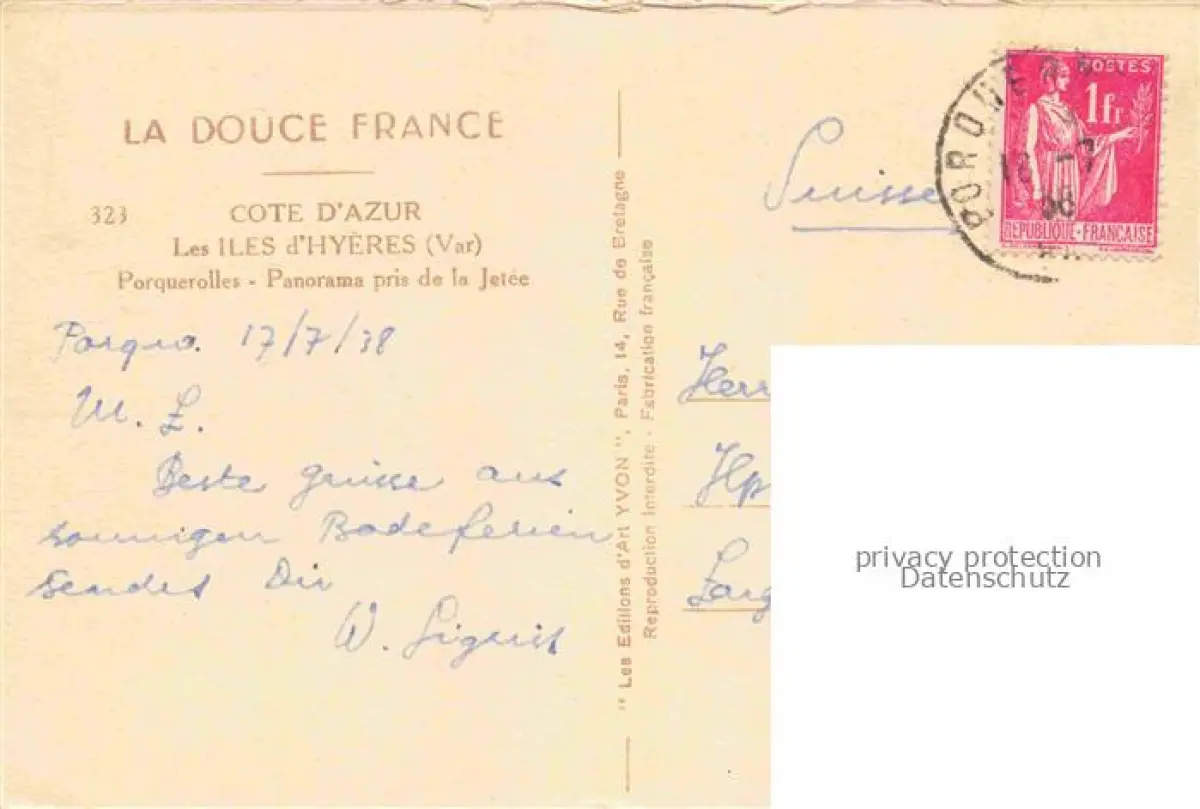 LA DOUCE FRANCE
323 COTE D'AZUR
Les ILES d'HYÈRES (Var)
Porquerolles - Panorama pris de la Jetée
Porqu. 17/7/38
M. L.
Beste grüsse aus
sonnigen Badeferien
sendet Dir
W.
"Les Editions d'Art YVON", Paris, 14, Rue de Bretagne
Reproduction Interdite - Fabrication française
Suisse
POSTES
1fr
REPUBLIQUE-FRANÇAISE
Herr
Hp
privacy protection
Datenschutz